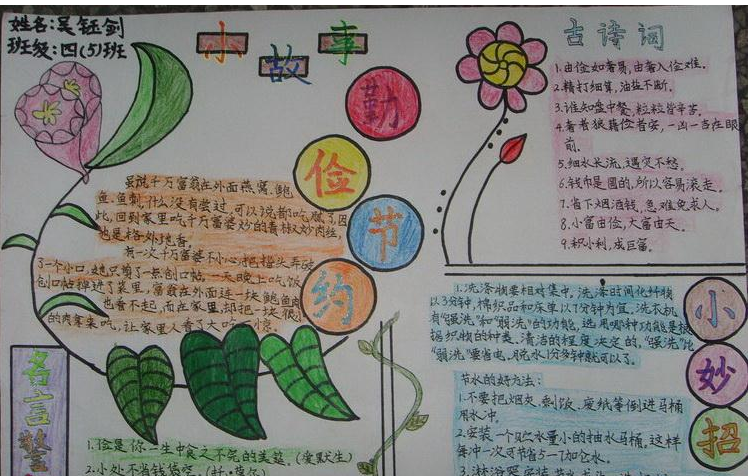 姓名:吴钰剑
班级:四(5)班
小故事
勤俭节约
虽说千万富翁在外面燕窝、鲍
鱼、鱼刺,什么没有尝过,可以说都吃腻了,因
此,回到家里吃千万富婆炒的青椒炒肉丝,
也是格外地香。
有一次千万富婆不小心把指头弄破
了一个小口,她只剪了一点创口帖,一天晚上吃饭
创口帖掉进了菜里,富翁在外面连一块鲍鱼肉
也看不起,而在家里,却把一块很小
的肉拿来吃,让家里人看了大吃一惊。
古诗词
1.由俭如奢易,由奢入俭难。
2.精打细算,油盐不断。
3.谁知盘中餐,粒粒皆辛苦。
4.奢者狼藉俭者安,一凶一吉在眼
前。
5.细水长流,遇灾不愁。
6.钱币是圆的,所以容易滚走。
7.省下烟酒钱,急难免求人。
8.小富由俭,大富由天。
9.积小利,成巨富。
小妙招
1.洗涤物要相对集中,洗涤时间化纤物
以3分钟,棉织品和床单以7分钟为宜,洗衣机
有“强洗”和“弱洗”的功能,选用哪种功能是根
据织物的种类、清洁的程度决定的,“强洗”比
“弱洗”要省电,脱水1分多钟就可以了。
节水的好方法:
1.不要把烟灰、剩饭、废纸等倒进马桶
用水冲。
2.安装一个贮水量小的抽水马桶,这样
每冲一次可节省5-10公升水。
名言警
1.俭是你一生中食之不完的美筵。(爱默生)
2.小处不省钱袋空。